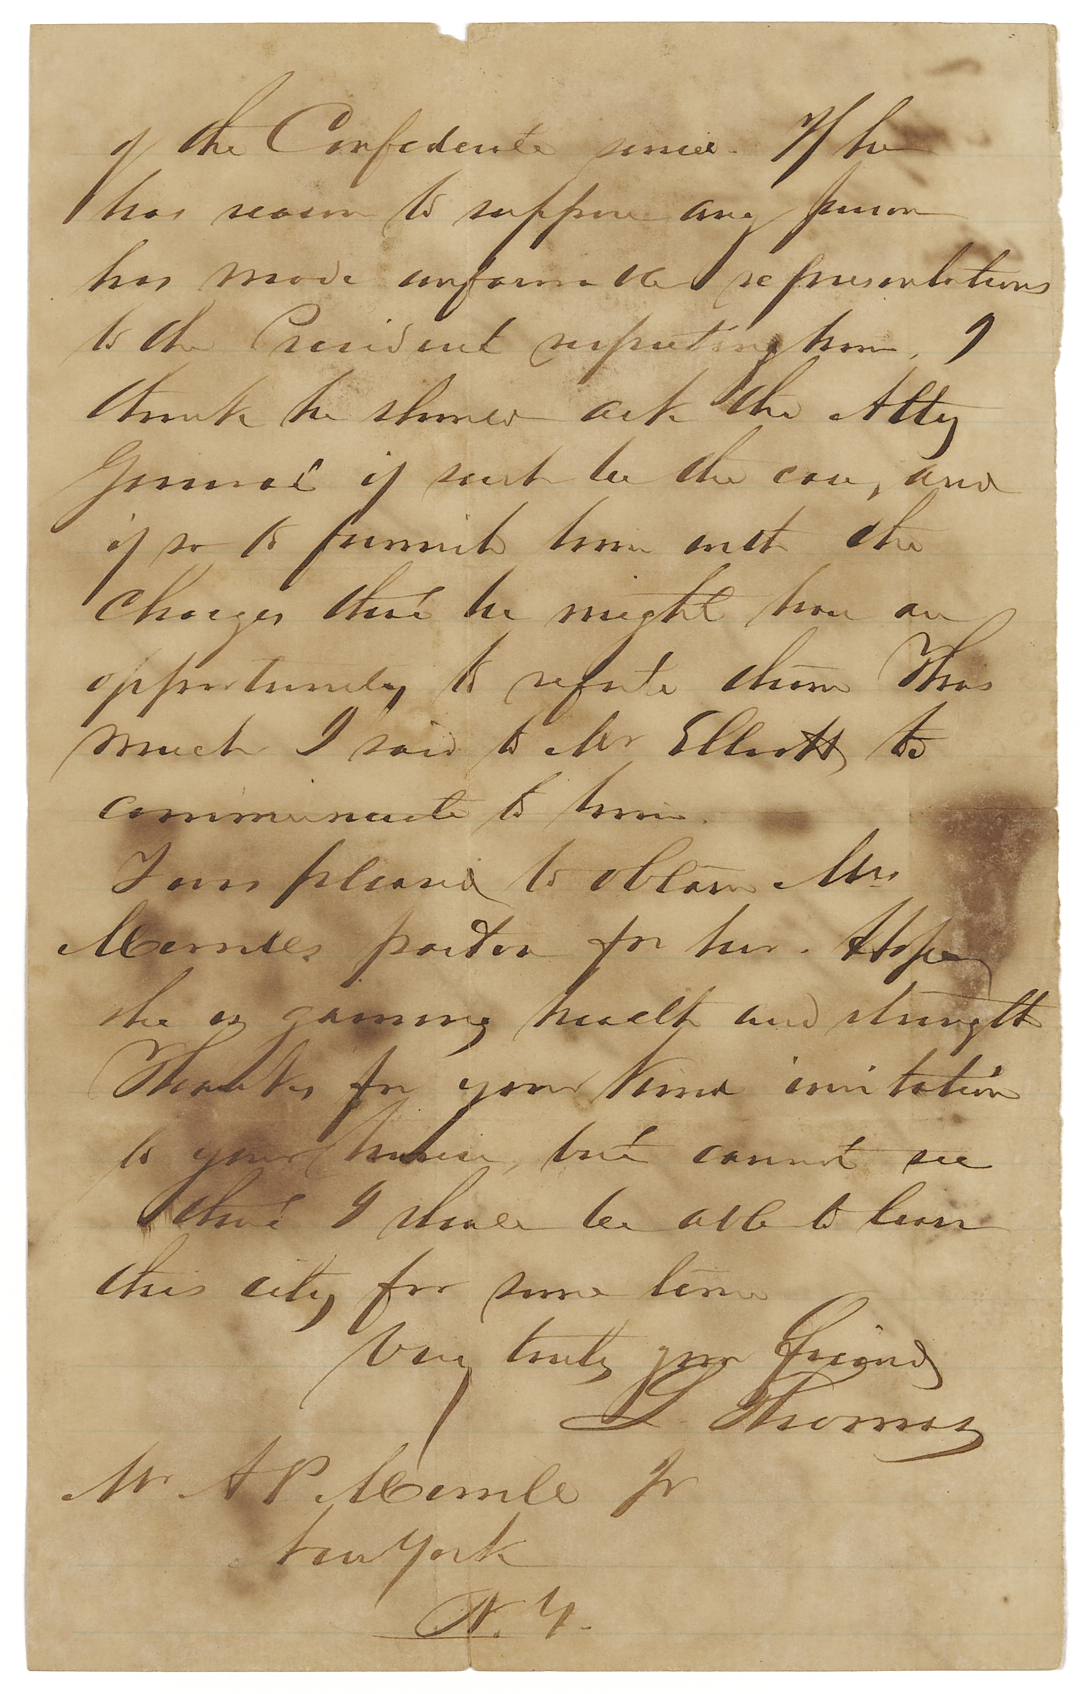 of the Confederate service. If he
has reason to suppose any person
has made unfavorable representations
to the President respecting him, I
think he should ask the Atty
General if such be the case, and
if so to furnish him with the
charges that he might have an
opportunity to refute them This
much I said to Mr Elliott to
communicate to him.
I am pleased to obtain Mrs
Merrill's pardon for her. Hope
she is gaining health and strength
Thanks for your kind invitation
to your house, but cannot see
that I shall be able to leave
this city for some time
Very truly your friend
L. Thomas
Mr A P Merrill Jr
New York
N. Y.